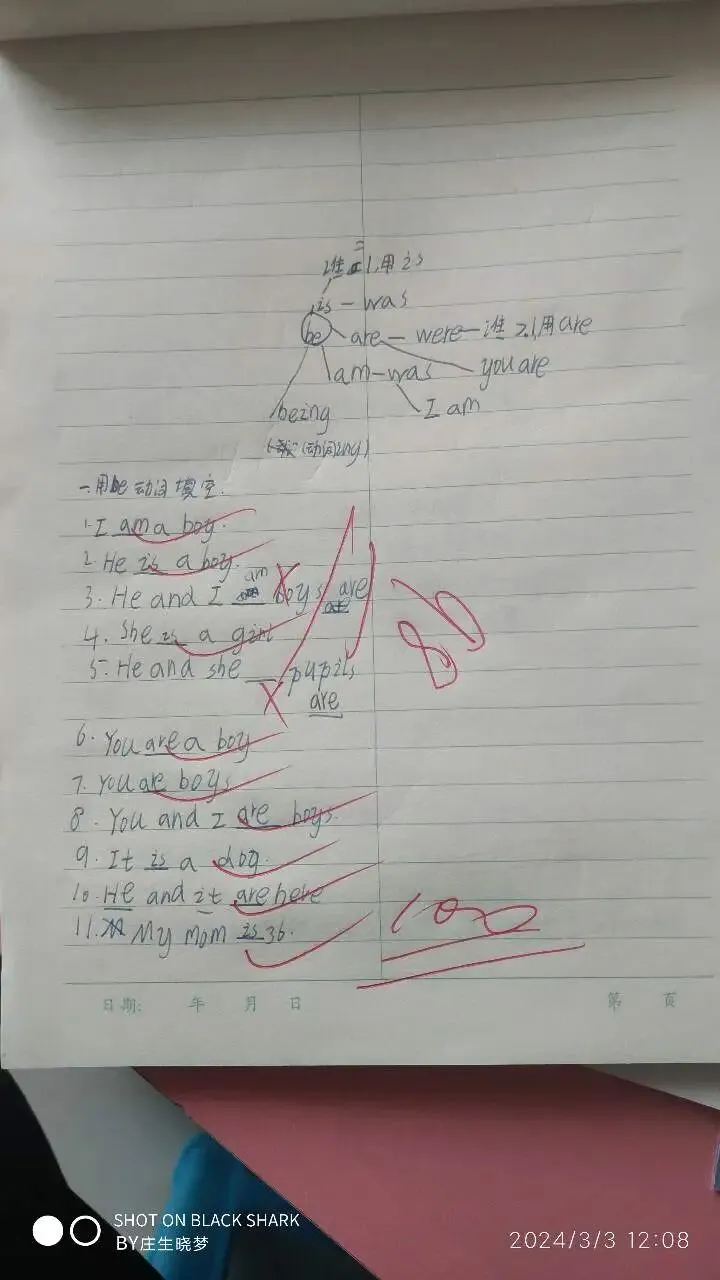 谁=1,用is
is-was
be are-were-谁≥1,用are
am-was you are
being I am
(动词ing)
一.用be动词填空.
1.I am a boy.
2.He is a boy.
3.He and I am boys are
4.She is a girl
5.He and she __ pupils
are
6.You are a boy
7.You are boys
8.You and I are boys.
9.It is a dog.
10.He and it are here
11.My mom is 36.
86
100
日期: 年 月 日 第 页
SHOT ON BLACK SHARK
BY庄生晓梦
2024/3/3 12:08